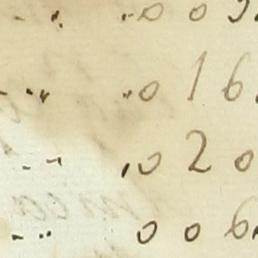 .. .. 0 0
.. .. 0 1 6.
.. .. 0 2 0
.. .. 0 0 6.